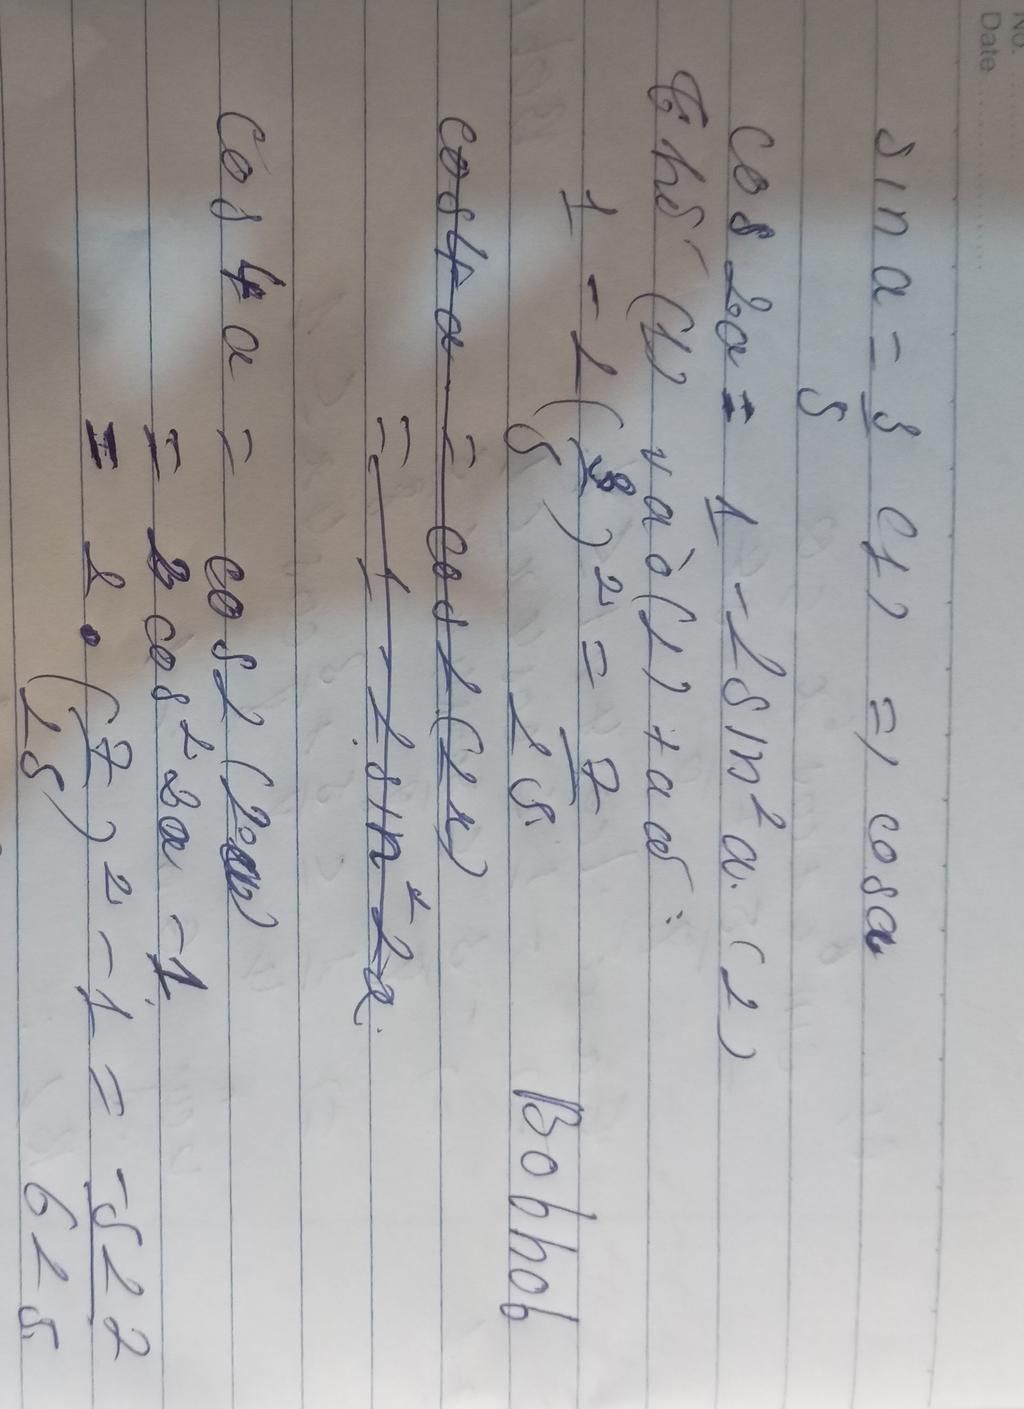 No.
Date
sin a = 3/5 (1) => cosa
cos 2a = 1 - 2sin²a. (2)
Thế (1) vào (2) ta có :
1 - 2(3/5)² = 7/25
Bobhob
cos4a = cos2(2x)
= 1 - 2sin²2a.
cos4a = cos2(2a)
= 2cos²2a - 1
= 2 . (7/25)² - 1 = -527/625